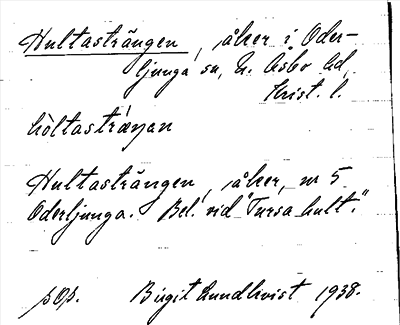 Hultasträngen, åker i Oder-
ljunga sn, N. Åsbo hd,
Krist. l.
hòltastræ̀ŋan
Hultasträngen, åker, nr 5
Oderljunga. Bel. vid "Tursahult."
Birgit Lundkvist 1938.